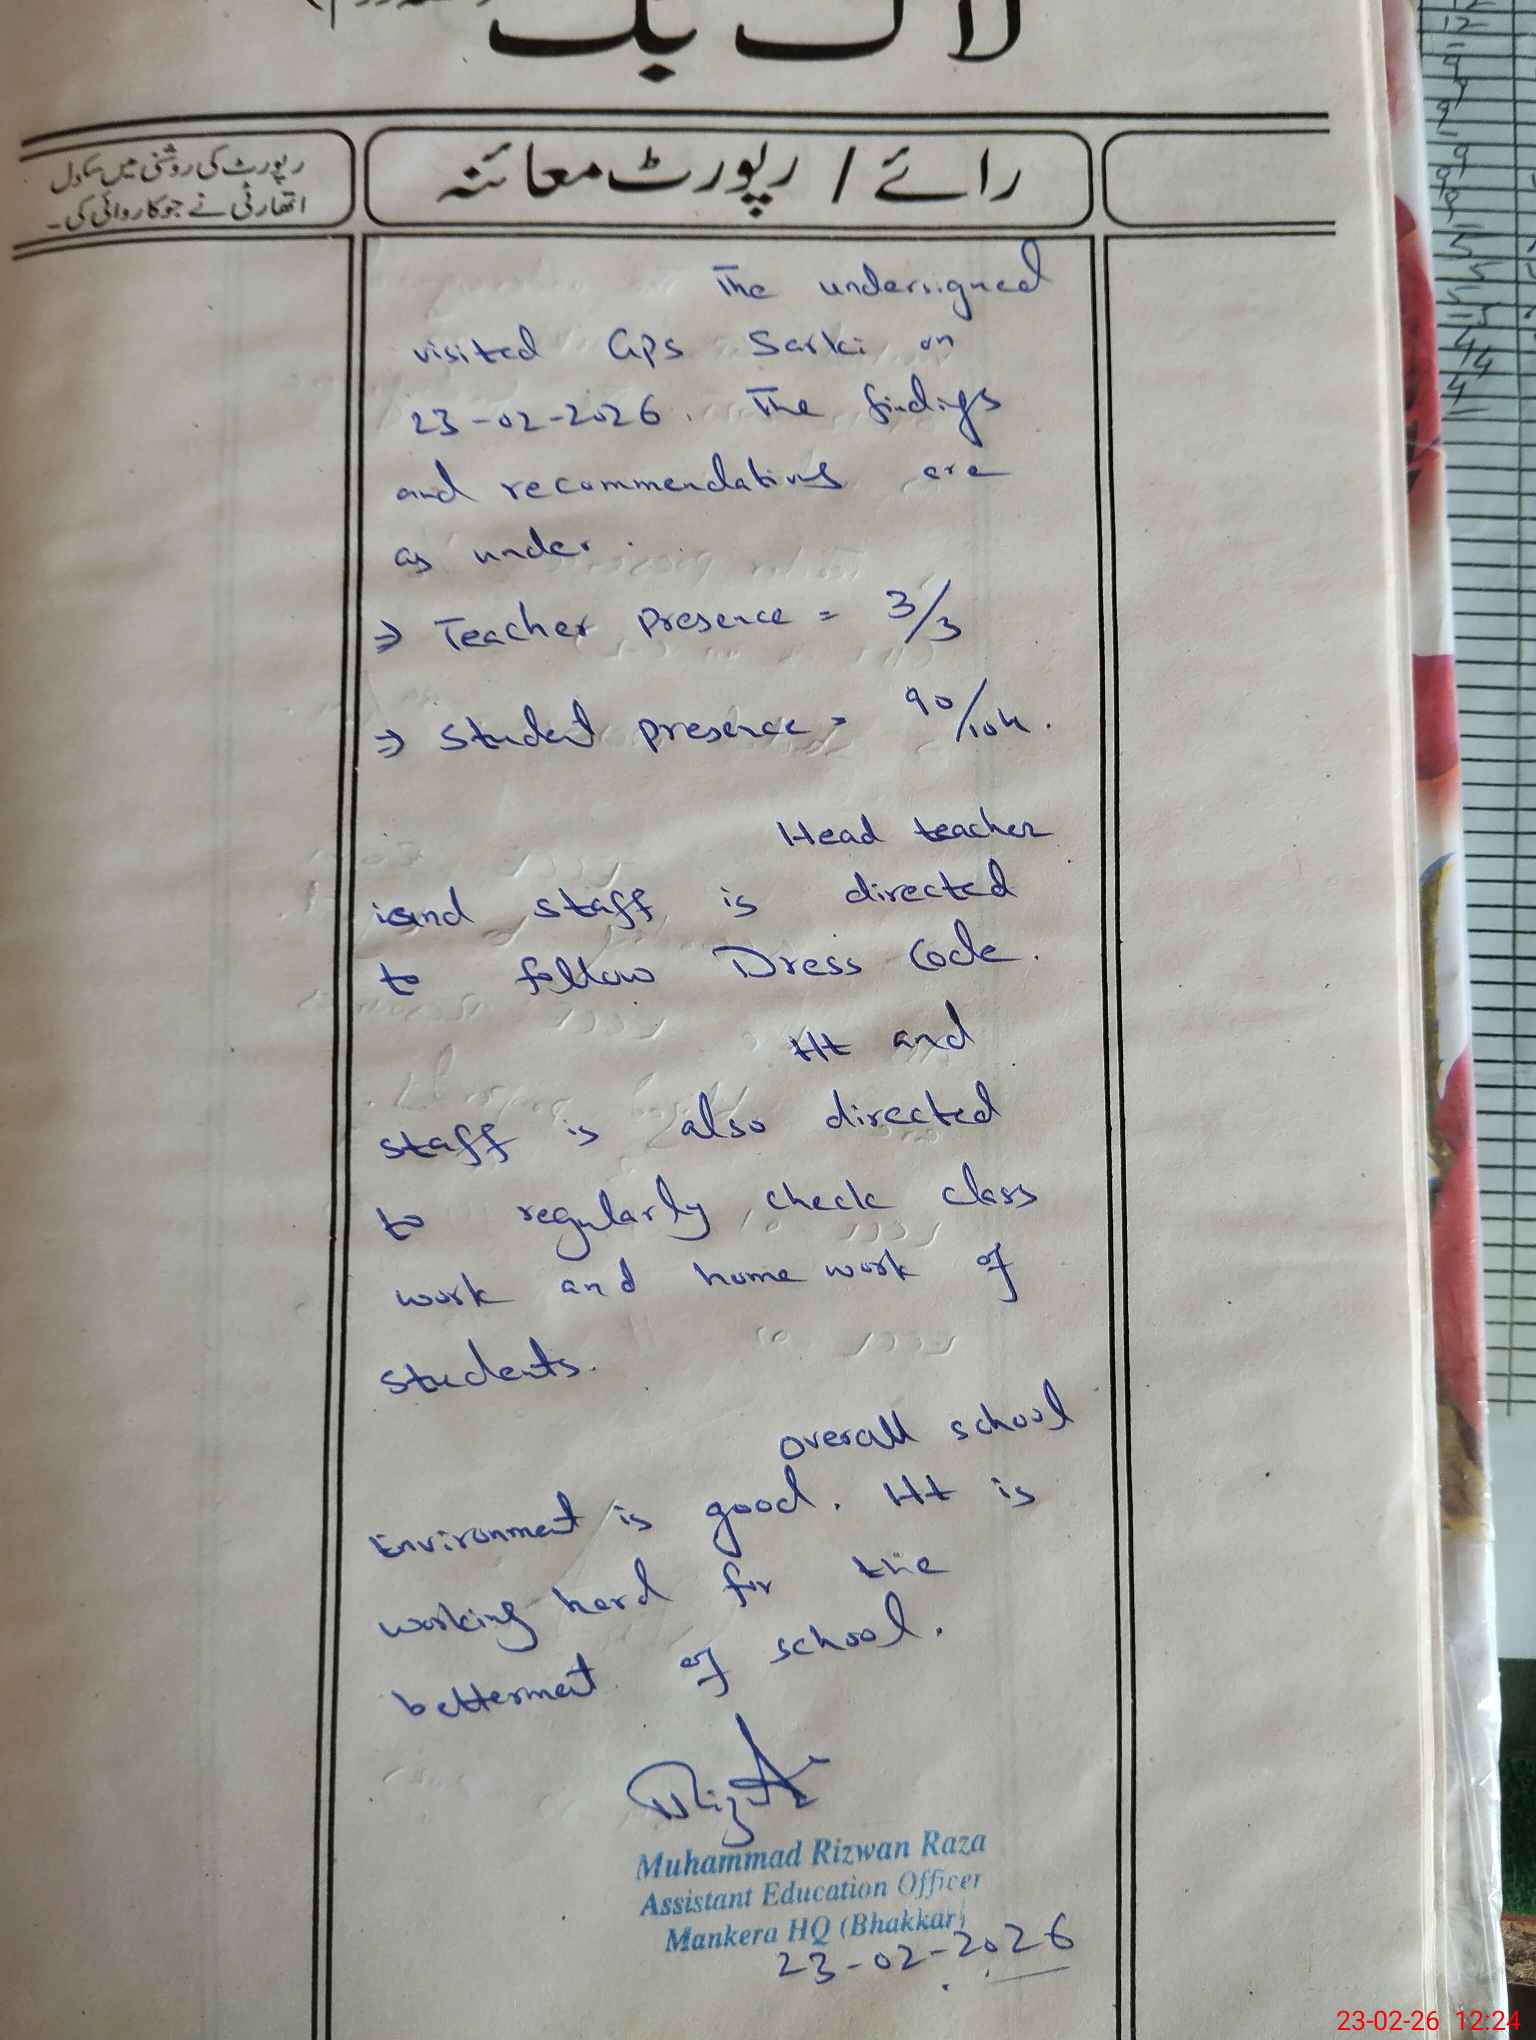 لاگ بک
رائے / رپورٹ معائنہ
رپورٹ کی روشنی میں سکول
اتھارٹی نے جو کاروائی کی۔
The undersigned
visited GPS Sarki on
23-02-2026. The findings
and recommendations are
as under.
⇒ Teacher presence = 3/3
⇒ Student presence = 90/104.
Head teacher
and staff is directed
to follow Dress Code.
Ht and
staff is also directed
to regularly check class
work and home work of
students.
overall school
Environment is good. Ht is
working hard for the
betterment of school.
Muhammad Rizwan Raza
Assistant Education Officer
Mankera HQ (Bhakkar)
23-02-2026
23-02-26 12:24